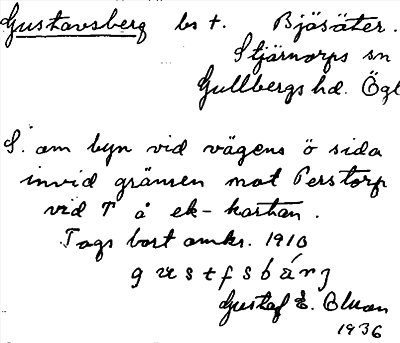 Gustavsberg bs t. Bjäsäter.
Stjärnorps sn
Gullbergs hd. Ögl
S. om byn vid vägens ö sida
invid gränsen mot Perstorp
vid T å ek-kartan.
Togs bort omkr. 1910
Gustaf E. Bluon
1936